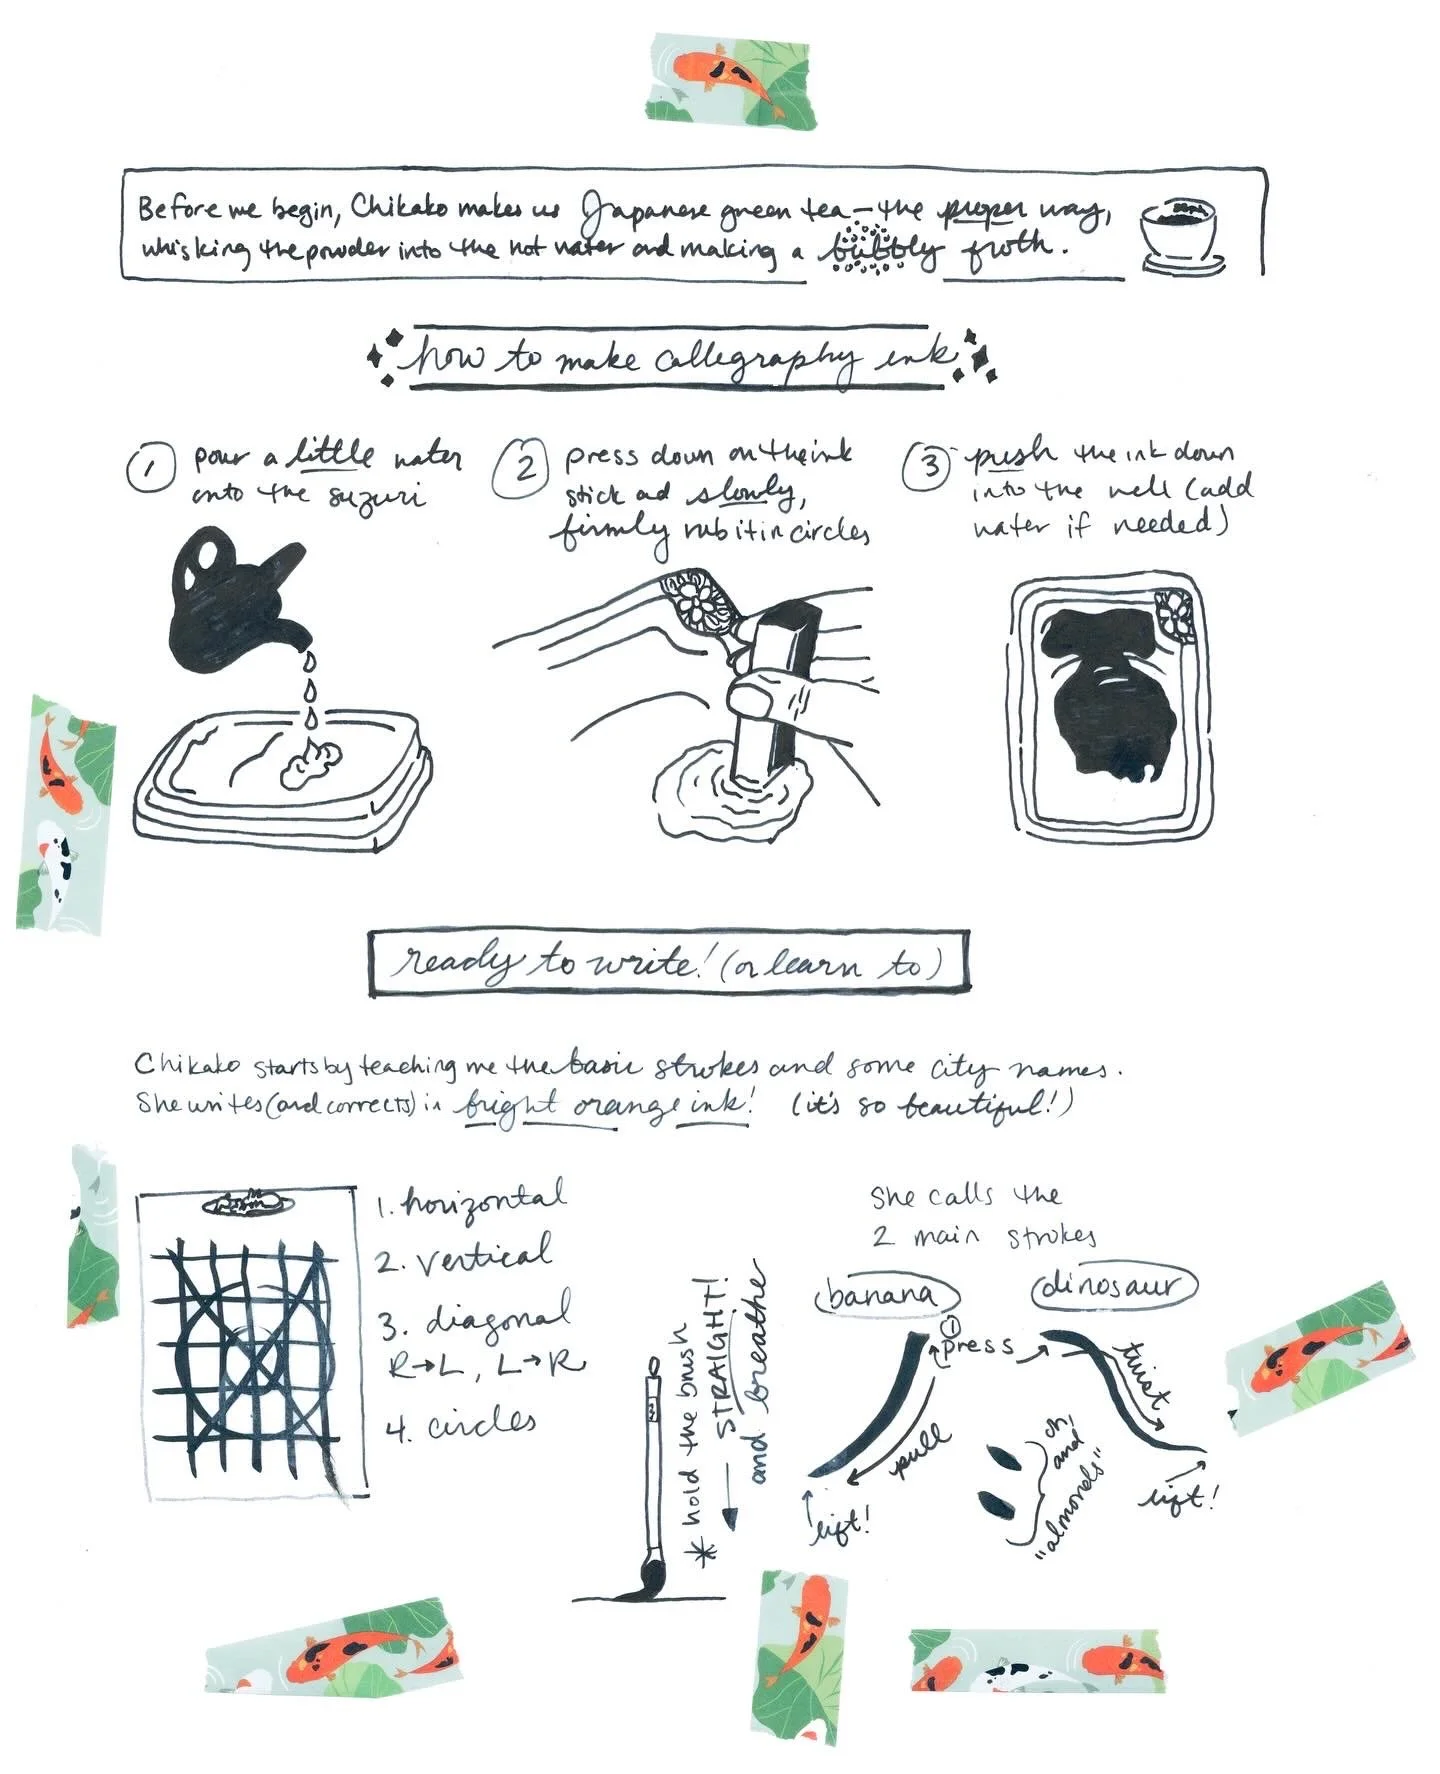 Before we begin, Chikako makes us Japanese green tea — the proper way,
whisking the powder into the hot water and making a bubbly froth.
how to make calligraphy ink
1 pour a little water
onto the suzuri
2 press down on the ink
stick and slowly,
firmly rub it in circles
3 push the ink down
into the well (add
water if needed)
ready to write! (or learn to)
Chikako starts by teaching me the basic strokes and some city names.
She writes (and corrects) in bright orange ink! (it's so beautiful!)
1. horizontal
2. vertical
3. diagonal
R→L, L→R
4. circles
* hold the brush
← STRAIGHT!
and breathe
She calls the
2 main strokes
banana
dinosaur
1
press
pull
lift!
twist
lift!
oh, and
"almonds"